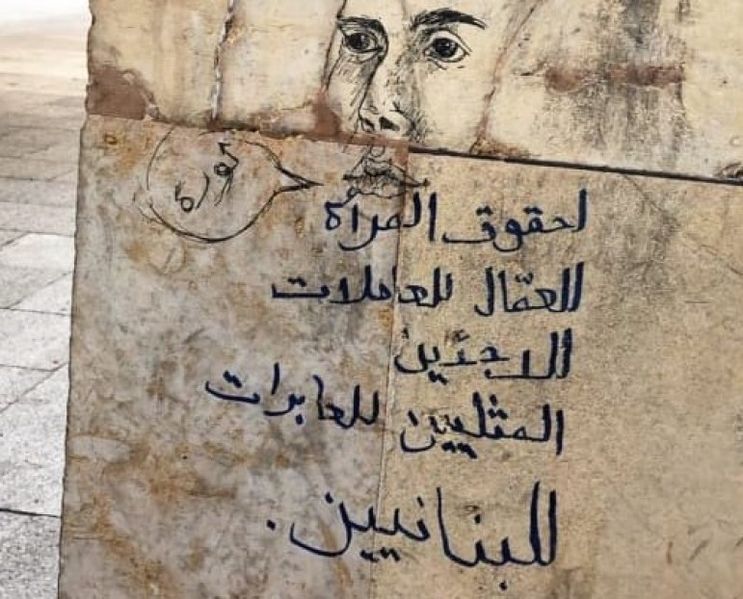 لحقوق المرأة
للعمّال للعاملات
للاجئين
المثليين للعابرات
للبنانيين.